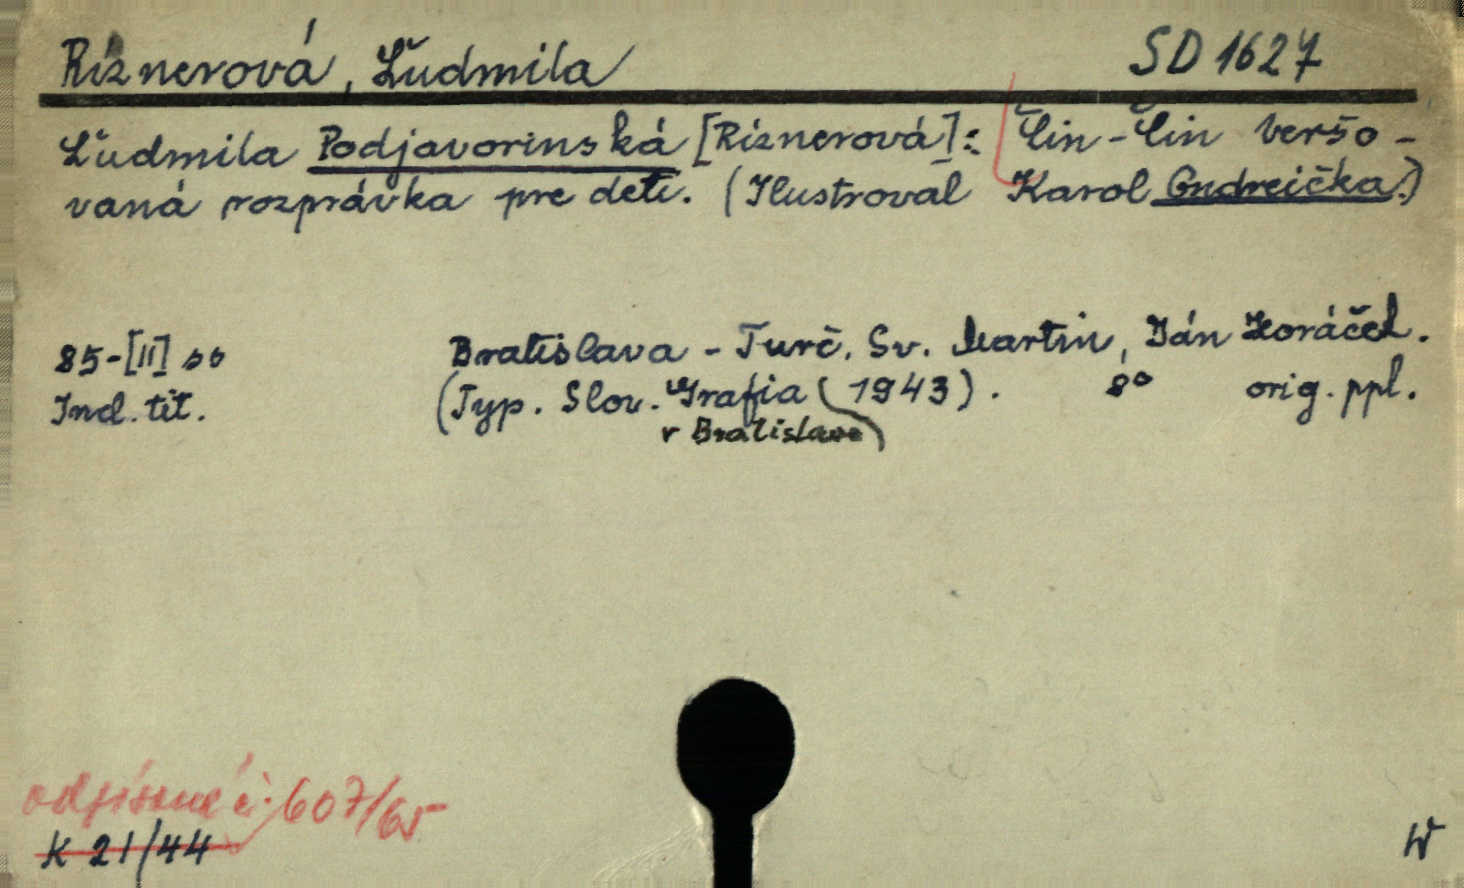 Riznerová, Ľudmila SD 1627
Ľudmila Podjavorinská [Riznerová]: Čin-Čin veršo-
vaná rozprávka pre deti. (Ilustroval Karol Ondreička.)
85-[II] ss Bratislava - Turč. Sv. Martin, Ján Horáček.
Incl. tit. (Typ. Slov. Grafia (1943). 8° orig. ppl.
v Bratislave)
odpísané č. 607/65
K 21/44
W